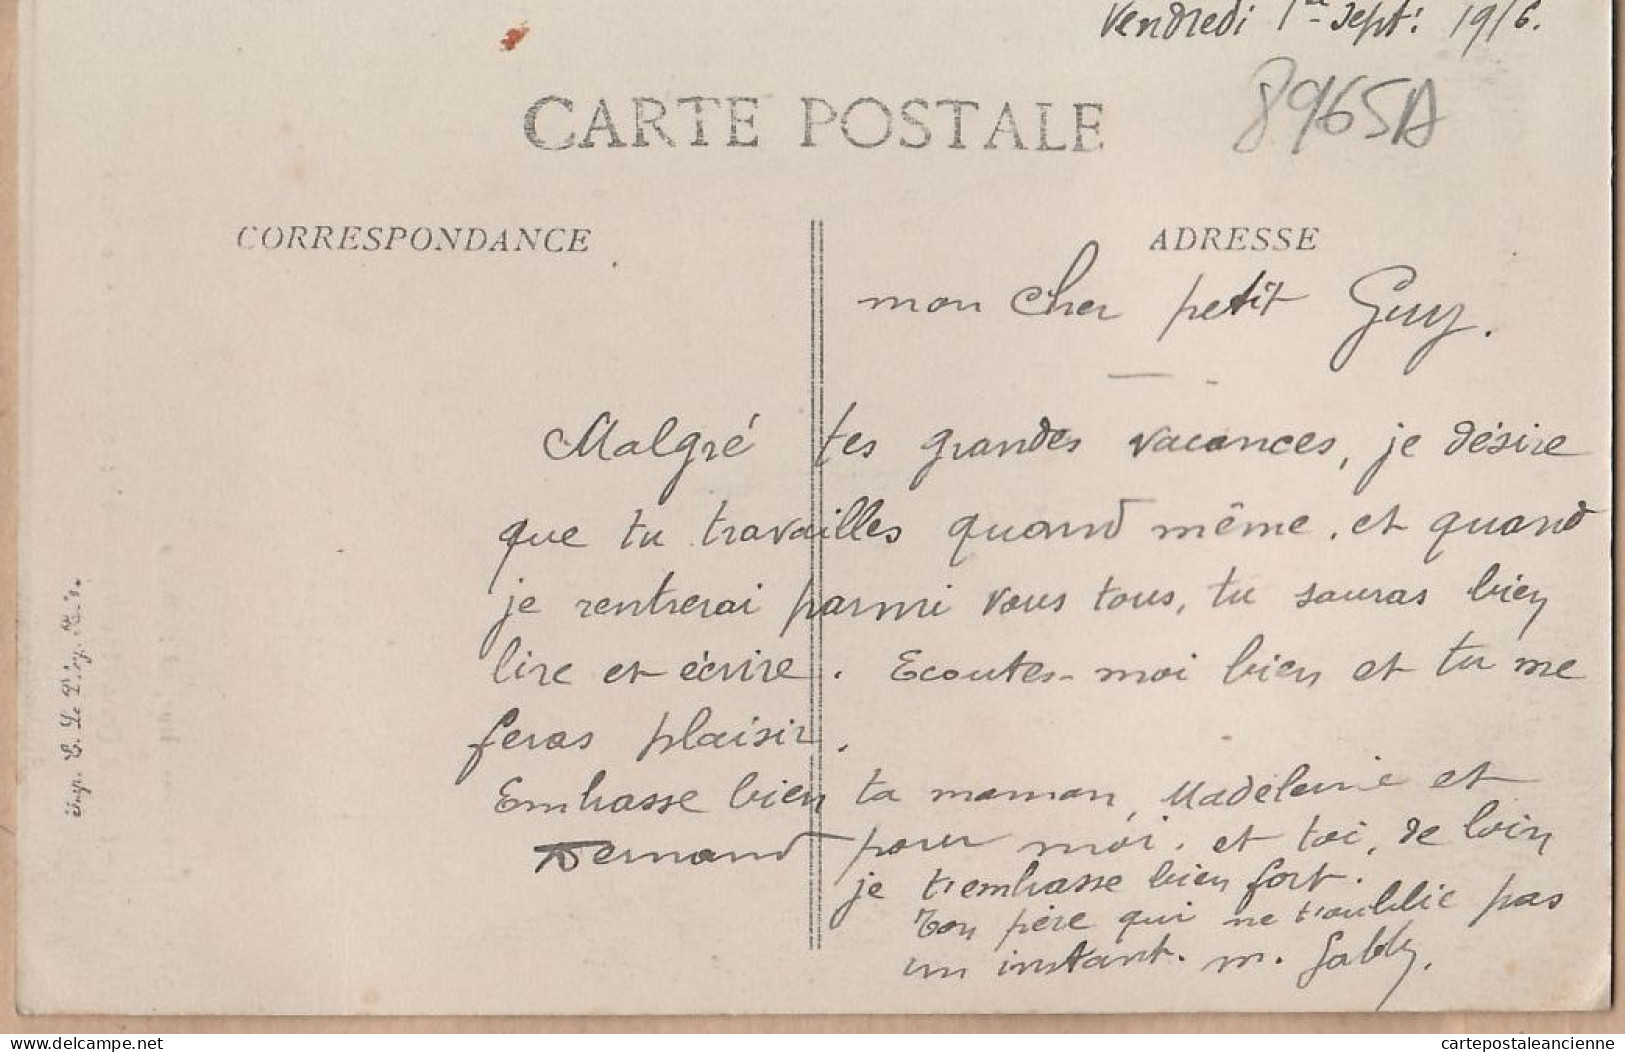 Vendredi 1er Sept: 1916.
CARTE POSTALE
8965A
CORRESPONDANCE
ADRESSE
mon cher petit Guy.
Malgré tes grandes vacances, je désire
que tu travailles quand même. et quand
je rentrerai parmi vous tous, tu sauras bien
lire et écrire. Ecoutes-moi bien et tu me
feras plaisir.
Embrasse bien ta maman, Madeleine et
Fernand pour moi. et toi, de loin
je t'embrasse bien fort.
Ton père qui ne t'oublie pas
un instant. m. Gabby.
Imp. E. Le
www.delcampe.net
cartepostaleancienne